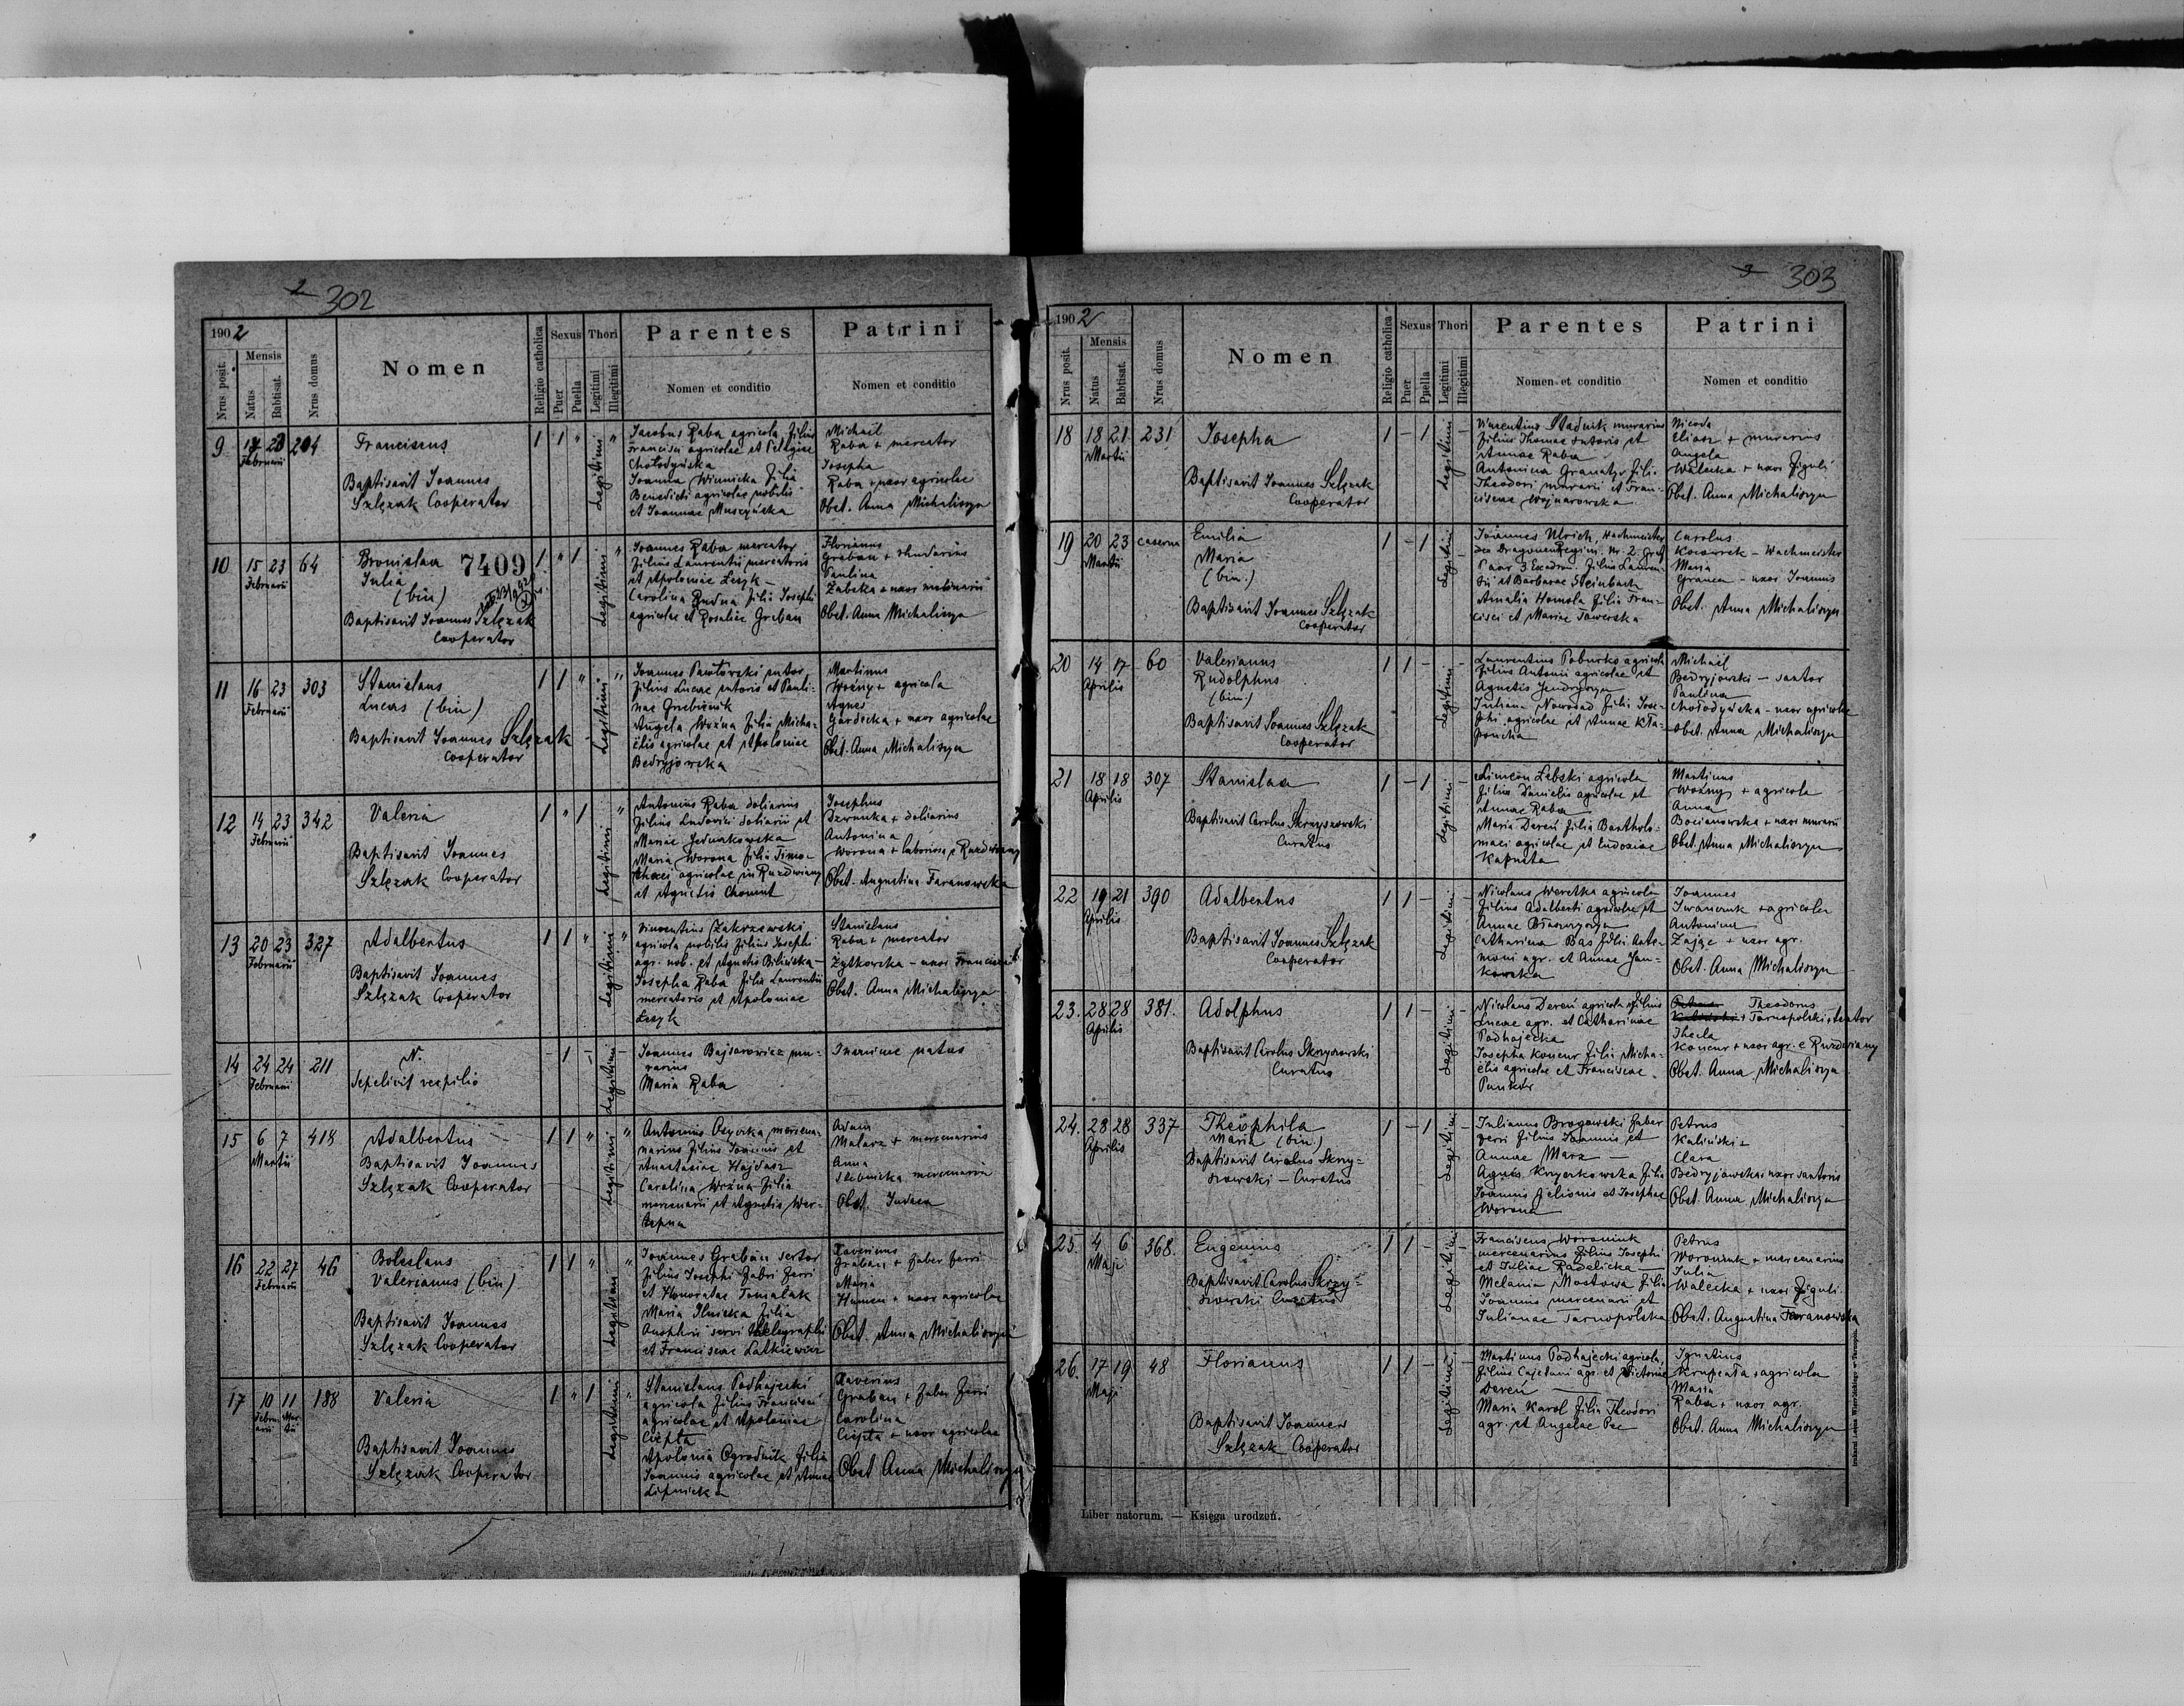 2 302
1902
Nrus posit.
Mensis
Natus
Babtisat.
Nrus domus
Nomen
Religio catholica
Sexus
Puer
Puella
Thori
Legitimi
Illegitimi
Parentes
Nomen et conditio
Patrini
Nomen et conditio
9 23 204
Februarii
Franciscus
Baptisavit Joannes
Szlęzak Cooperator
1 1 "
Legitimi "
Jacobus Raba agricola, filius
Francisci agricolae et Pelagiae
Chołodyńska
Joanna Winnicka filia
Benedicti agricolae nobilis
et Joannae Muszyńska
Michael
Raba + mercator
Josepha
Raba + uxor agricolae
Obst. Anna Michaliszyn
10 15 23 64
Februarii
Bronislaa 7409
Julia
(bin)
Baptisavit Joannes Szlęzak
Cooperator
1 " 1
Legitimi "
Joannes Raba mercator
filius Laurentii mercatoris
et Apoloniae Leszk –
Carolina Rudna filia Josephi
agricolae et Rosaliae Graban
Florianus
Graban +
Paulina
Zabska + uxor molinarii
Obst. Anna Michaliszyn
11 16 23 303
Februarii
Stanislaus
Lucas (bin)
Baptisavit Joannes Szlęzak
Cooperator
1 1 "
Legitimi "
Joannes Pawłowski sutor
filius Lucae sutoris et Pauli-
nae
Angela Woźna filia Micha-
ëlis agricolae et Apoloniae
Bedryjowska
Martinus
Woźny + agricola
Agnes
Gardecka + uxor agricolae
Obst. Anna Michaliszyn
12 14 23 342
Februarii
Valeria
Baptisavit Joannes
Szlęzak Cooperator
1 " 1
Legitimi "
Antonius Raba doliarius
filius Ludovici doliarii et
Mariae
Maria Worona filia Timo-
thaei agricolae in Ruzdwiany
et Agnetis Chomut
Josephus
Dzwonka + doliarius
Antonina
Worona + laboriosa e Ruzdwiany
Obst. Augustina Taranowska
13 20 23 327
Februarii
Adalbertus
Baptisavit Joannes
Szlęzak Cooperator
1 1 "
Legitimi "
Vincentius Zakrzewski
agricola nobilis filius Josephi
agr. nob. et Agnetis Bilińska –
Josepha Raba filia Laurentii
mercatoris et Apoloniae
Leszk
Stanislaus
Raba + mercator
Żytkowska – uxor Francisci
Obst. Anna Michaliszyn
14 24 24 211
Februarii
N.
Sepelivit vespilio
– 1 –
Legitimi –
Joannes Bajsarowicz mu-
rarius
Maria Raba
Inanime natus
15 6 7 418
Martii
Adalbertus
Baptisavit Joannes
Szlęzak Cooperator
1 1 "
Legitimi "
Antonius mercena-
narius filius Joannis et
Anastasiae Hajdasz
Carolina Woźna filia
mercenarii et Agnetis Wer-
Adam
Malarz + mercenarius
Anna
mercenaria
Obst. Judaea
16 22 27 46
Februarii
Boleslaus
Valerianus (bin)
Baptisavit Joannes
Szlęzak Cooperator
1 1 "
Legitimi "
Joannes Graban sartor
filius Josephi fabri ferri
et Honoratae Tomalak
Maria Ilnicka filia
Onophrii servi telegraphi
et Franciscae Latkiewicz
Xaverius
Graban + faber ferri
Maria
Humen + uxor agricolae
Obst. Anna Michaliszyn
17 10 11 188
Februarii Martii
Valeria
Baptisavit Joannes
Szlęzak Cooperator
1 " 1
Legitimi "
Stanislaus Podhajecki
agricola filius Francisci
agricolae et Apoloniae
Ciepta
Apolonia Ogrodnik filia
Joannis agricolae et Annae
Lipnicka
Xaverius
Graban + faber ferri
Carolina
Ciepta + uxor agricolae
Obst Anna Michaliszyn
3 303
1902
Nrus posit.
Mensis
Natus
Babtisat.
Nrus domus
Nomen
Religio catholica
Sexus
Puer
Puella
Thori
Legitimi
Illegitimi
Parentes
Nomen et conditio
Patrini
Nomen et conditio
18 18 21 231
Martii
Josepha
Baptisavit Joannes Szlęzak
Cooperator
1 – 1
Legitimi –
Vincentius Stadnik murarius
filius Thomae sutoris et
Annae Raba
Antonina Granaty fili-
Theodori murarii et Fran-
ciscae Wojnarowska
Nicola
Eliasz + murarius
Angela
Walecka + uxor figuli
Obst. Anna Michaliszyn
19 20 23 caserna
Martii
Emilia
Maria
(bin.)
Baptisavit Joannes Szlęzak
Cooperator
1 – 1
Legitimi –
Joannes Ulrich, Wachmeister
des Dragonen Regim. Nr. 2. Graf
Paar 3 Escadron. filius Lauren-
tii et Barbarae Steinbach
Amalia Homola filia Fran-
cisci et Mariae Tawerska
Carolus
– Wachmeister
Maria
– uxor Joannis
Obst. Anna Michaliszyn
20 14 17 60
Aprilis
Valerianus
Rudolphus
(bin)
Baptisavit Joannes Szlęzak
Cooperator
1 1 –
Legitimi –
Laurentius Poburko agricola
filius Antonii agricolae et
Agnetis
Juliana Nowosad filia Jose-
phi agricolae et Annae Kła-
poucha
Michaël
Bedryjowski – sartor
Paulina
Chołodyńska – uxor agricolae
Obst. Anna Michaliszyn
21 18 18 307
Aprilis
Stanislaa
Baptisavit Carolus Skrzyszowski
Curatus
1 – 1
Legitimi –
Simeon Lebski agricola
filius Danielis agricolae et
Annae Raba
Maria Dereń filia Bartholo-
maei agricolae et Eudoxiae
Kapusta
Martinus
Woźny + agricola
Anna
Bocianowska + uxor murarii
Obst. Anna Michaliszyn
22 19 21 390
Aprilis
Adalbertus
Baptisavit Joannes Szlęzak
Cooperator
1 1 –
Legitimi –
Nicolaus Weretka agricola
filius Adalberti agricolae et
Annae
Catharina Bas filia Anto-
nii agr. et Annae Jan-
kowska
Joannes
Iwanczuk + agricola
Antonina
Zając + uxor agr.
Obst. Anna Michaliszyn
23. 28 28 381.
Aprilis
Adolphus
Baptisavit Carolus Skrzyszowski
Curatus
1 1 –
Legitimi –
Nicolaus Dereń agricola filius
Lucae agr. et Catharinae
Podhajecka
Josepha Koncur filia Micha-
ëlis agricolae et Franciscae
Theodorus
+ Tarnopolski + textor
Thecla
Koncur + uxor agr. e Ruzdwiany
Obst. Anna Michaliszyn
24. 28 28 337
Aprilis
Theophila
Maria (bin.)
Baptisavit Carolus Skrzy-
szowski – Curatus
1 – 1
Legitimi –
Julianus Brogowski faber
ferri filius Joannis et
Annae Marz –
Agnes Krzyczkowska filia
Joannis pelionis et Josephae
Worona
Petrus
Kaliński
Clara
Bedryjowska uxor sartoris
Obst. Anna Michaliszyn
25. 4 6 368.
Maji
Eugenius
Baptisavit Carolus Skrzy-
szowski Curatus
1 1 –
Legitimi –
Franciscus Woroniuk
mercenarius filius Josephi
et Juliae Radelicka –
Melania Mostowa filia
Joannis mercenarii et
Julianae Tarnopolska
Petrus
Woroniuk + mercenarius
Julia
Walecka + uxor figuli
Obst. Augustina Taranowska
26. 17 19 48
Maji
Florianus
Baptisavit Joannes
Szlęzak Cooperator
1 1 –
Legitimi –
Martinus Podhajecki agricola,
filius Cajetani agr. et Victoriae
Dereń
Maria Karol filia Theodori
agr. et Angelae Pec
Ignatius
Krupeata + agricola
Maria
Raba + uxor agr.
Obst. Anna Michaliszyn
Liber natorum. — Księga urodzeń.